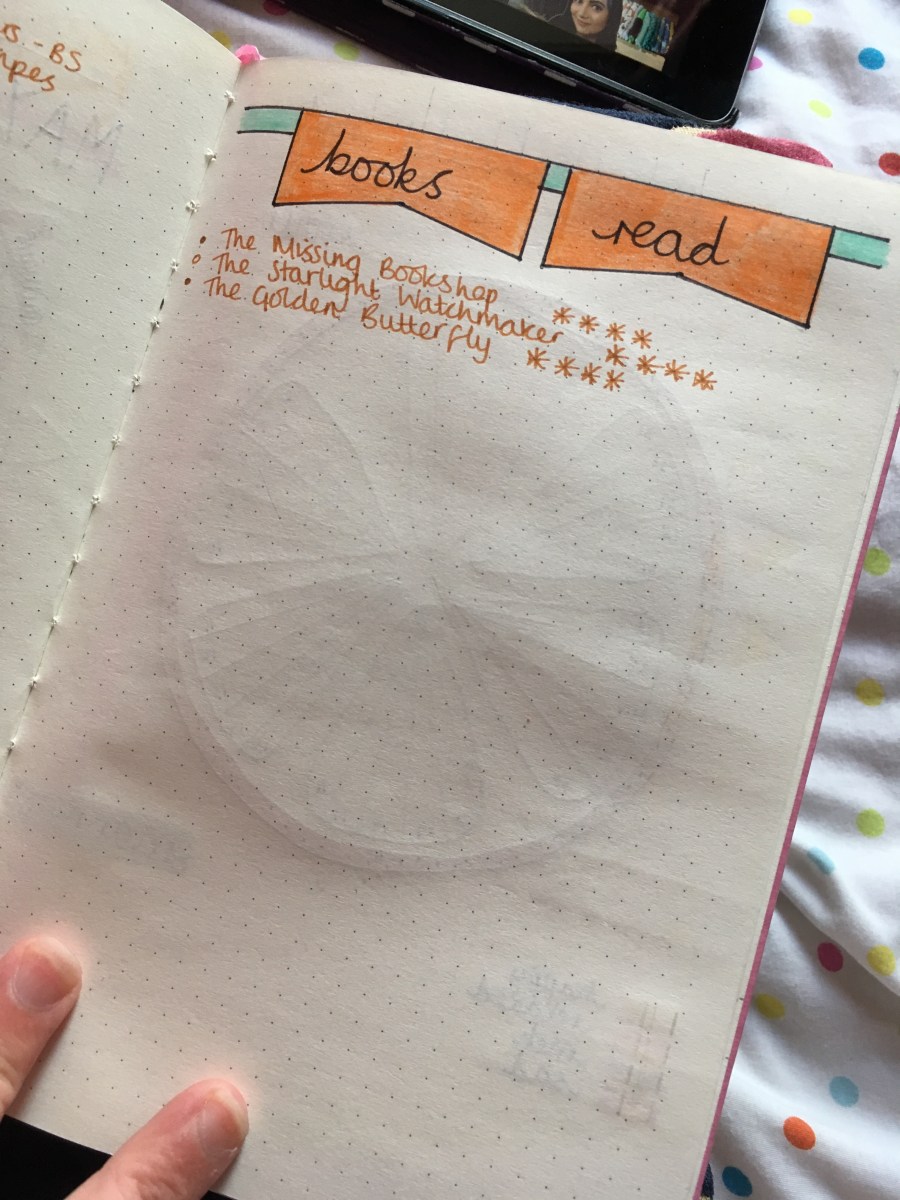 books read
• The Missing Bookshop ****
° The Starlight Watchmaker ****
• The Golden Butterfly ****
- BS